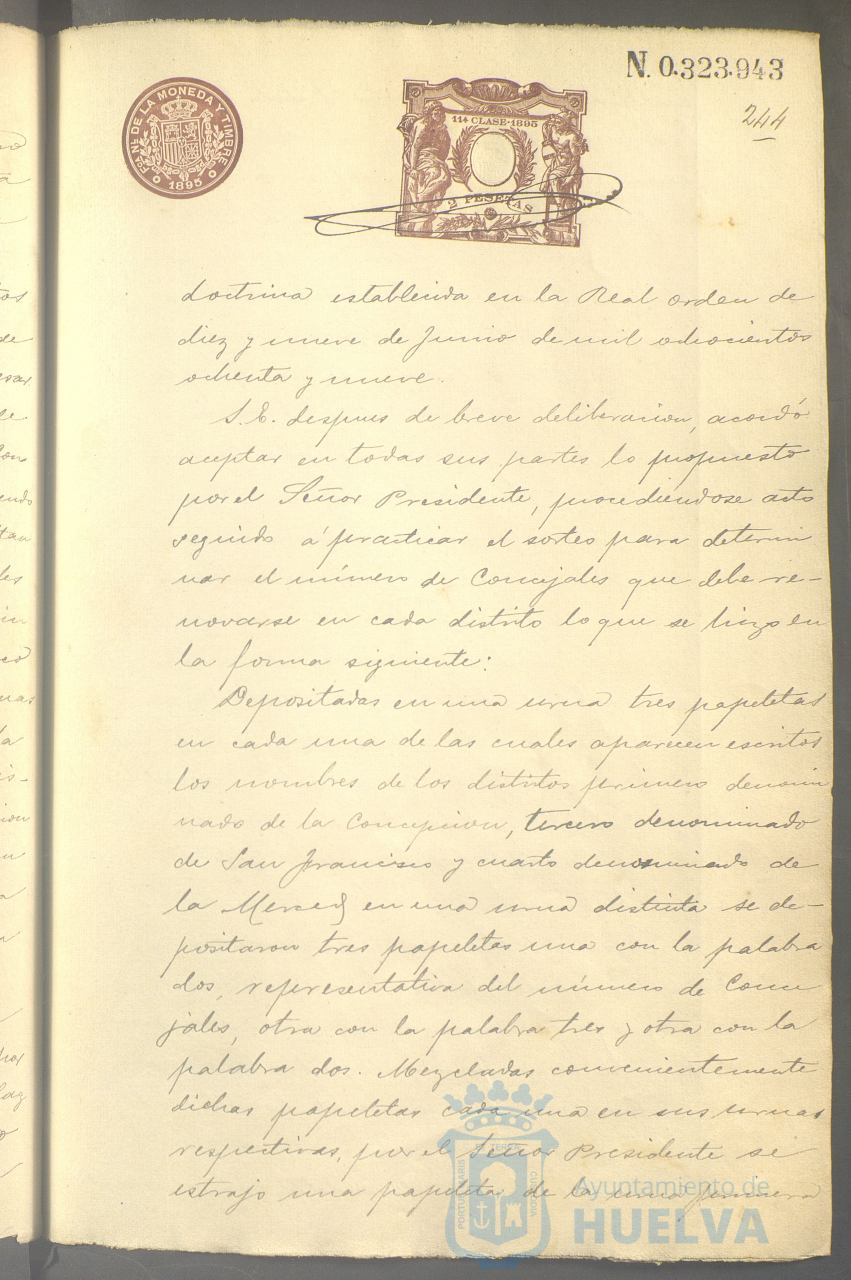 N. 0.323.943
244
Fca. Nl. DE LA MONEDA Y TIMBRE
1895
11ª CLASE·1895
2 PESETAS
doctrina establecida en la Real orden de
diez y nueve de Junio de mil ochocientos
ochenta y nueve.
S. E. despues de breve deliberacion, acordó
aceptar en todas sus partes lo propuesto
por el Señor Presidente, procediendose acto
seguido á practicar el sorteo para determi
nar el número de Concejales que debe re-
novarse en cada distrito lo que se hizo en
la forma siguiente:
Depositadas en una urna tres papeletas
en cada una de las cuales aparecen escritos
los nombres de los distritos primero denomi
nado de la Concepcion, tercero denominado
de San Francisco y cuarto denominado de
la Merced en una urna distinta se de-
positaron tres papeletas una con la palabra
dos, representativa del número de Conce
jales, otra con la palabra tres y otra con la
palabra dos. Mezcladas convenientemente
dichas papeletas cada una en sus urnas
respectivas, por el Señor Presidente se
estrajo una papeleta de la urna primera
PORTUS MARIS ET TERRE CUSTODIA
Ayuntamiento de
HUELVA